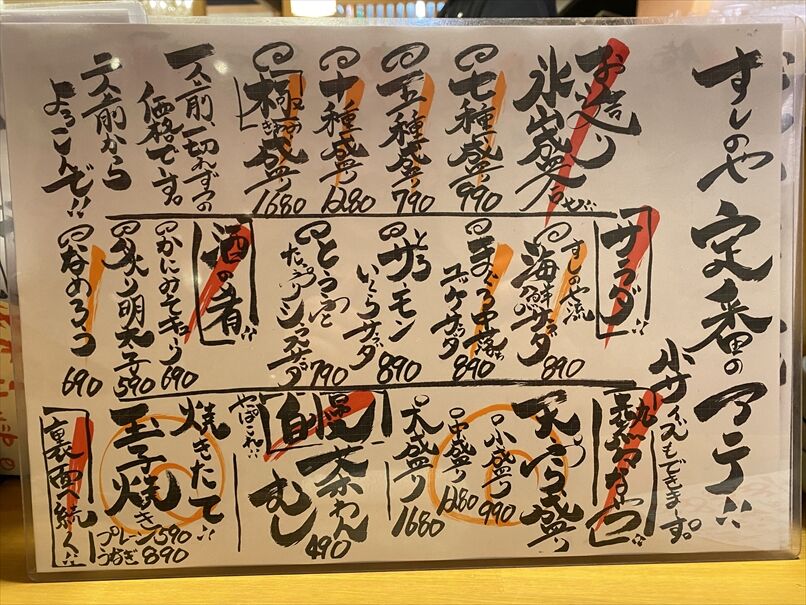 すしのや 定番のアテ!!
お造り
氷山盛合せ!!
七種盛り 990
五種盛り 790
十種盛り 1280
極盛り 1680
一人前一切れずつの
価格です。
二人前から
よろこんで!!
サラダ!!
小サイズもできます。
すしのや流
海鮮のサラダ 890
まぐろ中落ち
ユッケサラダ 890
とろサーモン
いくらサラダ 890
とうふと
たっぷりシラスサラダ 790
酒の肴!!
かにみそキュウ 690
炙り明太子 590
なめろう 690
天ぷら盛り
小盛り 990
中盛り 1280
大盛り 1680
茶わん
むし 490
やっぱこれ!!
焼きたて!!
玉子焼き
プレーン 590
うなぎ 890
裏面へ続く!!